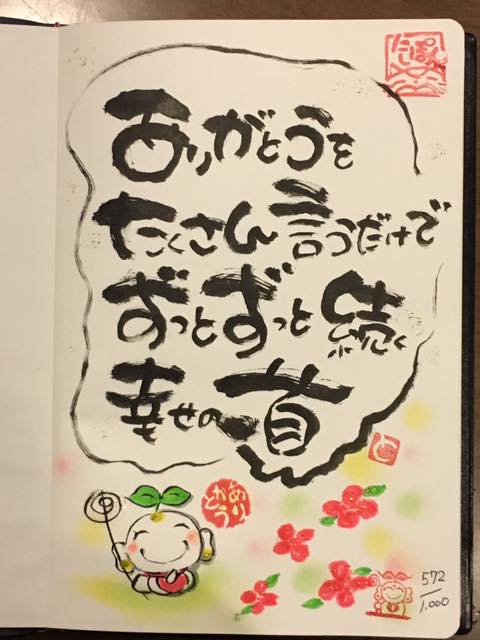 ありがとうを
たくさん言うだけで
ずっとずっと続く
幸せの道
572
1,000